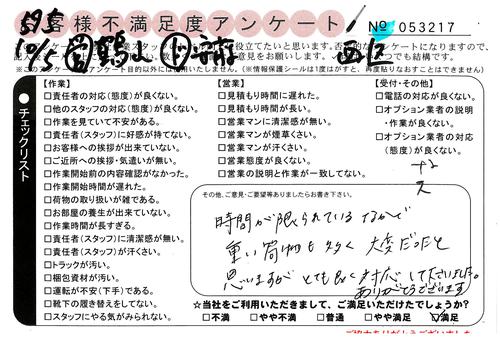 お客様不満足度アンケート
№ 053217
10/5
西区
※このアンケートはアンケート目的以外には使用いたしません。(※情報保護シールは1度はがすと、再度貼りなおすことはできません)
チェックリスト
【作業】
□責任者の対応(態度)が良くない。
□他のスタッフの対応(態度)が良くない。
□作業を見ていて不安がある。
□責任者(スタッフ)に好感が持てない。
□お客様への挨拶が出来ていない。
□ご近所への挨拶・気遣いが無い。
□作業開始前の内容確認がなかった。
□作業開始時間が遅れた。
□荷物の取り扱いが雑である。
□お部屋の養生が出来ていない。
□作業時間が長すぎる。
□責任者(スタッフ)に清潔感が無い。
□責任者(スタッフ)が汗くさい。
□トラックが汚い。
□梱包資材が汚い。
□運転が不安(下手)である。
□靴下の履き替えをしてない。
□スタッフにやる気がみられない。
【営業】
□見積もり時間に遅れた。
□見積もり時間が長い。
□営業マンに清潔感が無い。
□営業マンが煙草くさい。
□営業マンが汗くさい。
□営業態度が良くない。
□営業の説明と作業が一致してない。
【受付・その他】
□電話の対応が良くない。
□オプション業者の説明
・作業が良くない。
□オプション業者の対応
(態度)が良くない。
その他、ご意見・ご要望等ありましたらお書き下さい。
時間が限られているなかで
重い荷物も多く 大変だったと
思いますが とても良く対応して下さいました。
ありがとうございます
☆当社をご利用いただきまして、ご満足いただけたでしょうか?
□不満 □やや不満 □普通 □やや満足 ☑満足
ご協力ありがとうございました